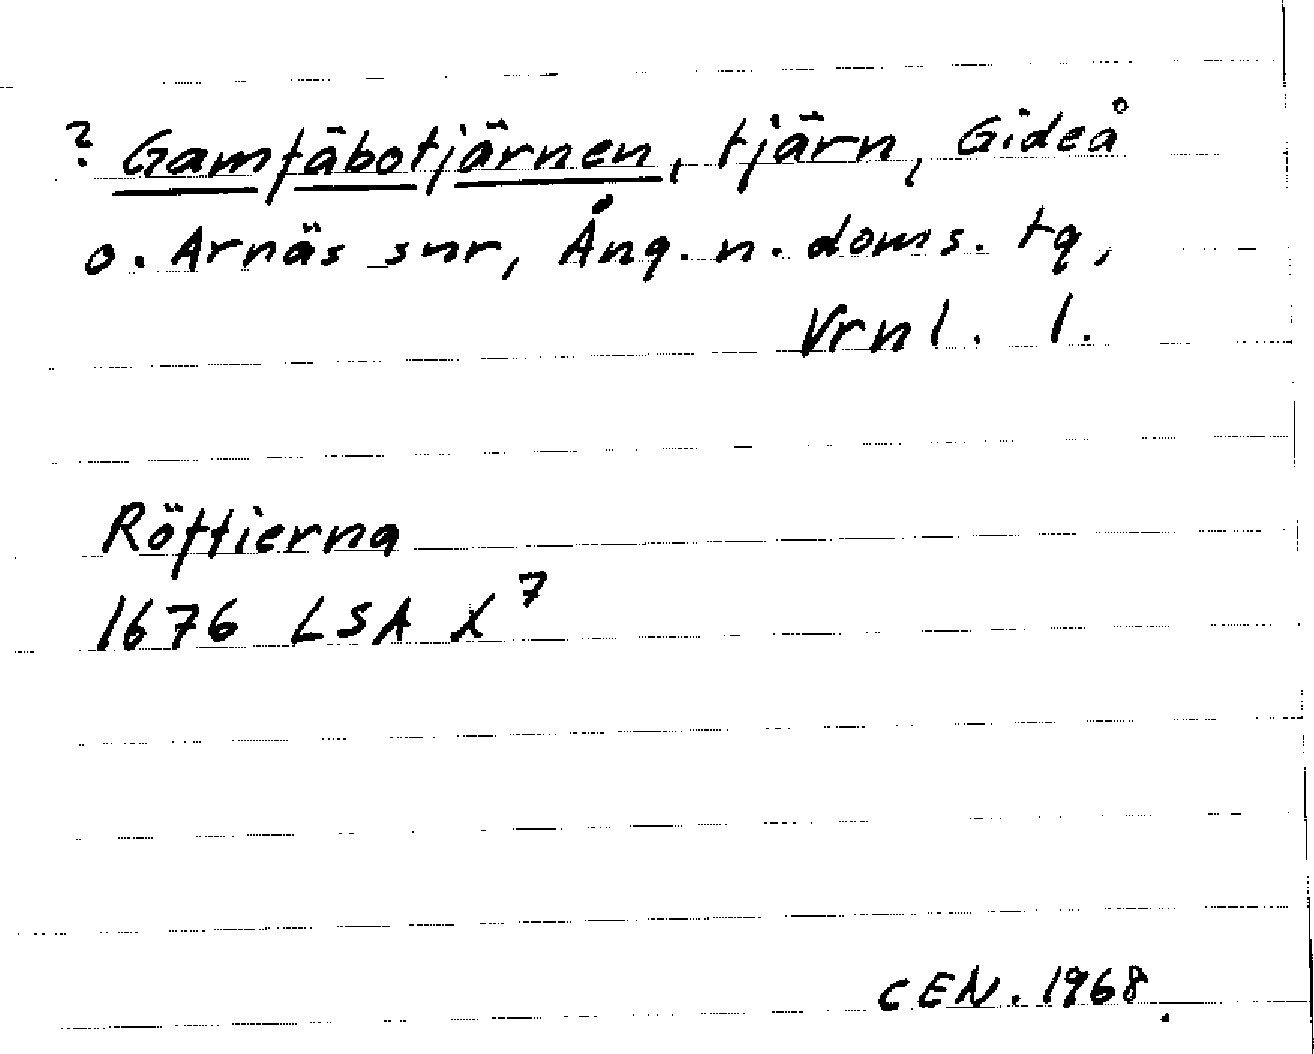 ? Gamfäbotjärnen, tjärn, Gideå
o. Arnäs snr, Ång. n. doms. tg,
Vrnl. l.
Röftierna
1676 LSA X 7
CEN. 1968.